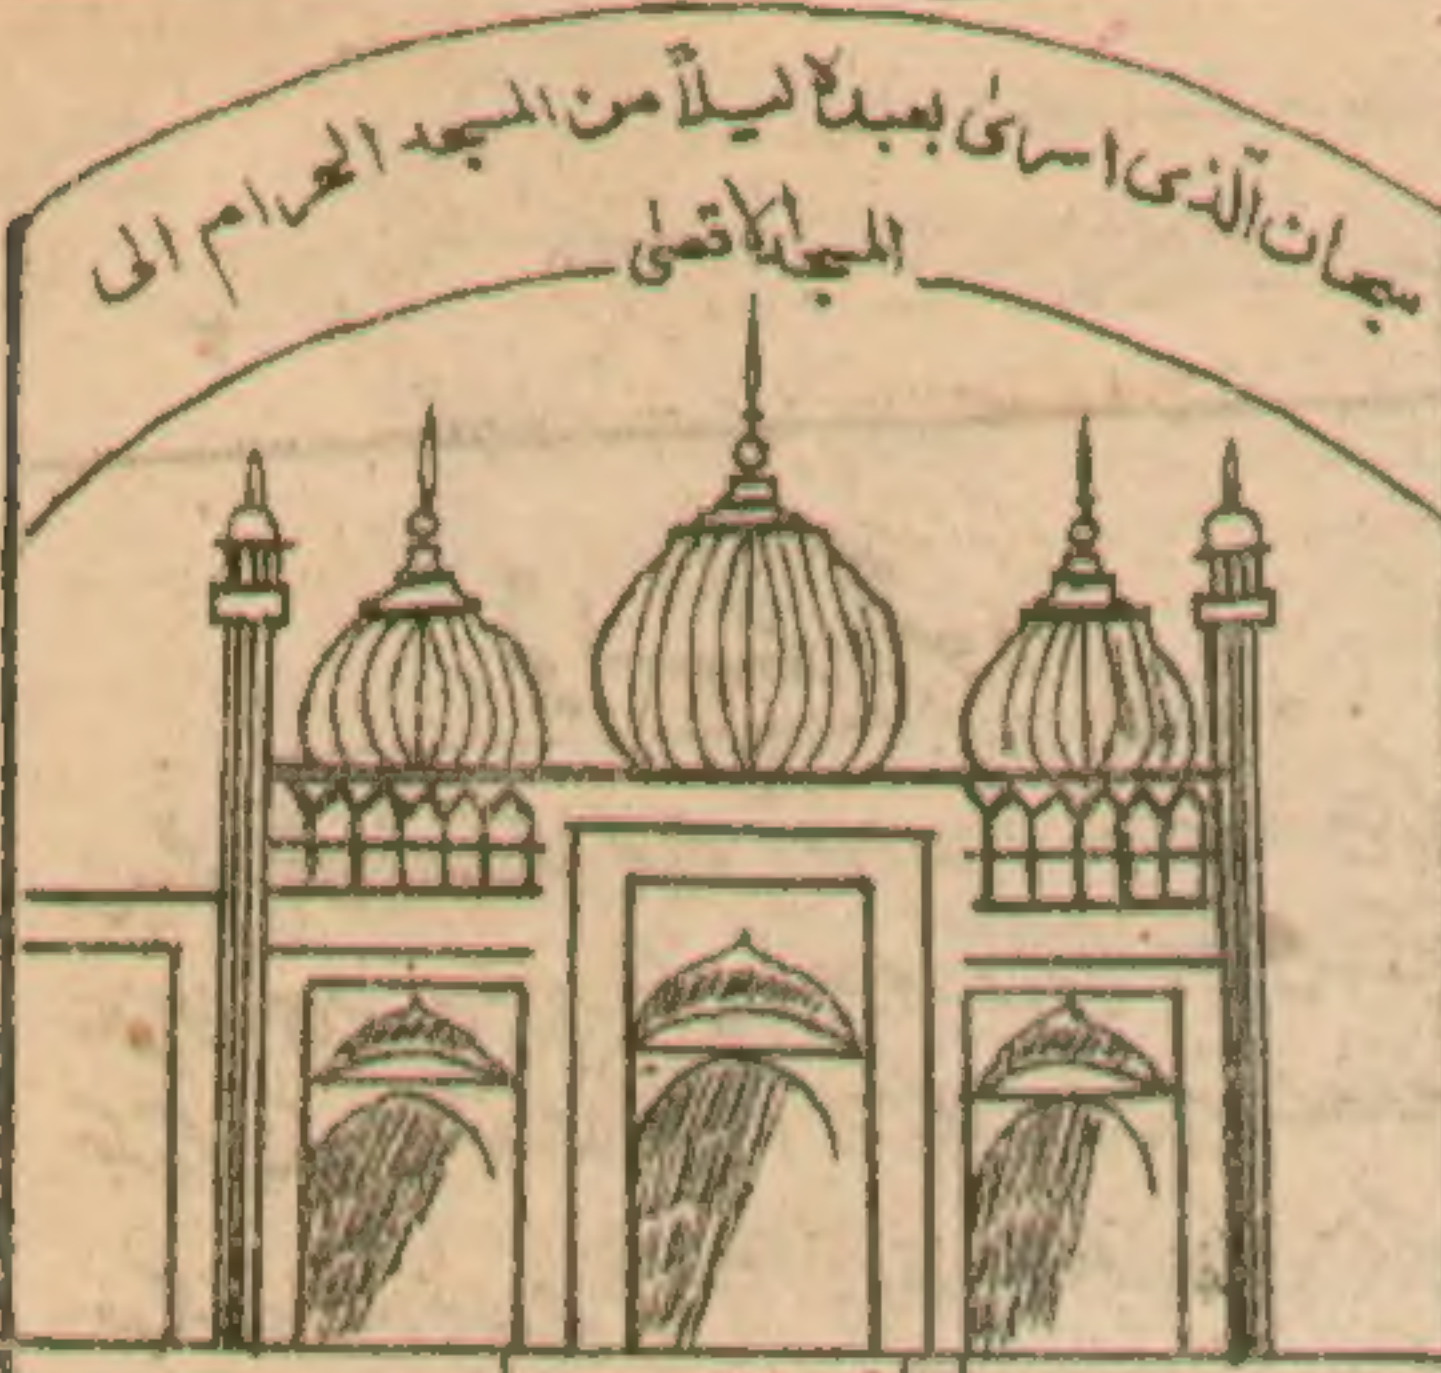 سبحان الّذی اسرىٰ بعبدہ لیلاً من المسجد الحرام الی
المسجد الاقصیٰ